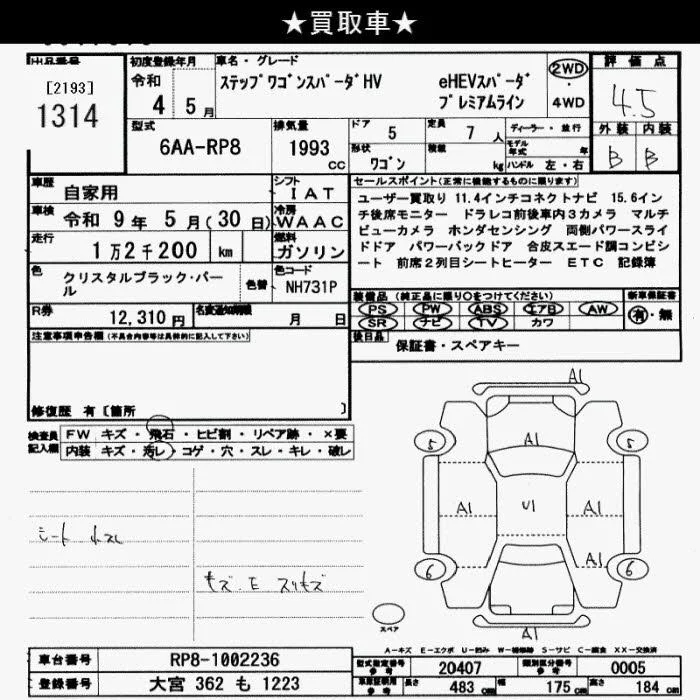 ★買取車★
出品番号
[2193]
1314
初度登録年月
令和
4 5月
車名・グレード
ステップワゴンスパーダHV eHEVスパーダ
プレミアムライン
2WD
・
4WD
評価点
4.5
外装 内装
B B
型式
6AA-RP8
排気量
1993
cc
ドア
5
形状
ワゴン
定員
7 人
積載
kg
ディーラー・並行
モデル年式 年
ハンドル 左・右
車歴
自家用
シフト
IAT
車検
令和 9年 5月(30日)
冷房
WAAC
走行
1万2千200 km
燃料
ガソリン
色
クリスタルブラック・パール
色替
色コード
NH731P
R券
12,310円
名変通知期限
月 日
セールスポイント(正常に機能するものに限ります)
ユーザー買取り 11.4インチコネクトナビ 15.6イン
チ後席モニター ドラレコ前後車内3カメラ マルチ
ビューカメラ ホンダセンシング 両側パワースライ
ドドア パワーバックドア 合皮スエード調コンビシ
ート 前席2列目シートヒーター ETC 記録簿
装備品 (純正品に限り○をつけてください)
PS PW ABS エアB AW
SR ナビ TV カワ
新車保証書
有・無
後日品
保証書・スペアキー
注意事項申告欄(不具合内容等は具体的に記入して下さい)
修復歴 有〔箇所 〕
検査員
記入欄
FW キズ・飛石・ヒビ割・リペア跡・×要
内装 キズ・汚レ・コゲ・穴・スレ・キレ・破レ
キズ・E スリキズ
A1
A1
5 5
A1 U1 A1
A1
6 6
A1
スペア
A-キズ E-エクボ U-凹み W-補修跡 S-サビ C-腐食 XX-交換済
車台番号
RP8-1002236
登録番号
大宮 362 も 1223
型式指定番号
参考
20407
類別区分番号
参考
0005
車庫証明用
参考
長さ 483 cm
幅 175 cm
高さ 184 cm